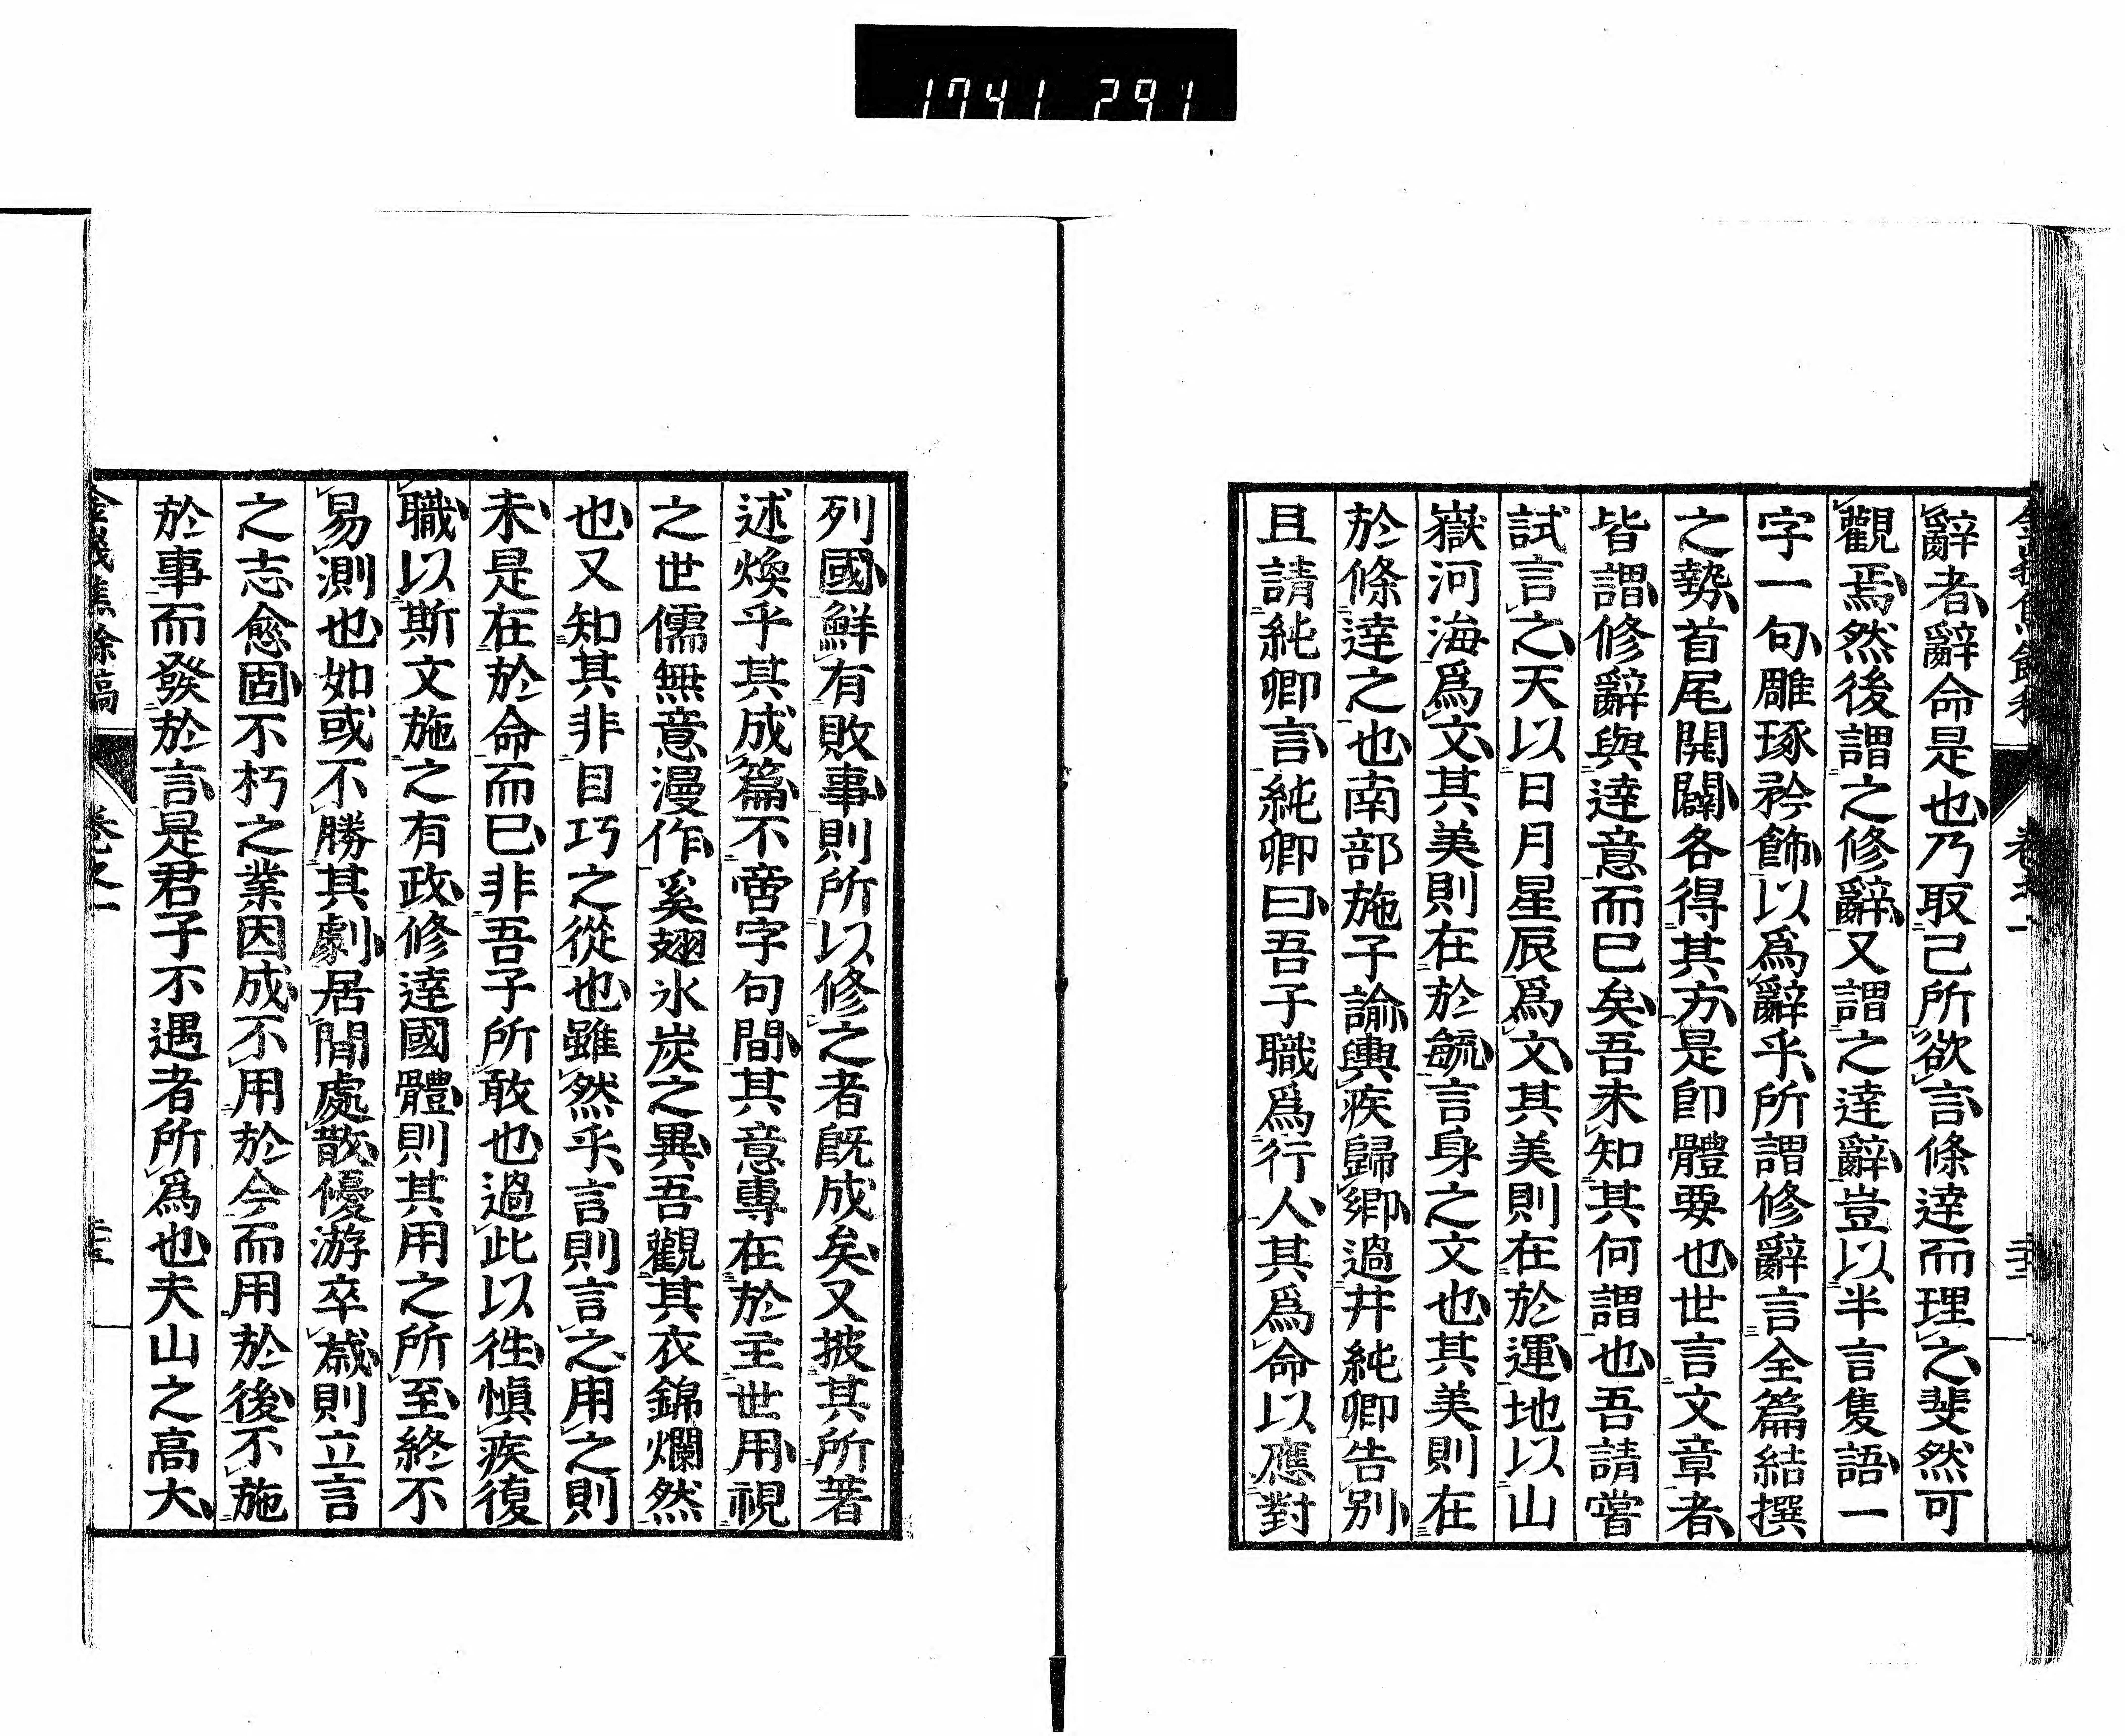 1741 291
辭者辭命是也乃取己所欲言條達而理之斐然可
觀焉然後謂之修辭又謂之達辭豈以半言隻語一
字一句雕琢矜飾以爲辭乎所謂修辭言全篇結撰
之勢首尾開闢各得其方是卽體要也世言文章者
皆謂修辭與達意而已矣吾未知其何謂也吾請嘗
試言之天以日月星辰爲文其美則在於運地以山
嶽河海爲文其美則在於毓言身之文也其美則在
於條達之也南部施子諭輿疾歸鄉過井純卿告別
且請純卿言純卿曰吾子職爲行人其爲命以應對
列國鮮有敗事則所以修之者既成矣又披其所著
述煥乎其成篇不啻字句間其意專在於主世用視
之世儒無意漫作奚翅氷炭之異吾觀其衣錦爛然
也又知其非目巧之從也雖然乎言則言之用之則
未是在於命而已非吾子所敢也過此以徃愼疾復
職以斯文施之有政修達國體則其用之所至終不
易測也如或不勝其劇居閒處散優游卒歲則立言
之志愈固不朽之業因成不用於今而用於後不施
於事而發於言是君子不遇者所爲也夫山之高大
金峨焦餘稿 卷之一